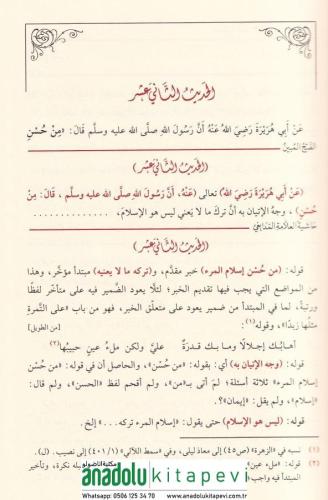 الحديث الثاني عشر
عَنْ أَبِي هُرَيْرَةَ رَضِيَ اللهُ عَنْهُ أَنَّ رَسُولَ اللهِ صلَّى الله عليه وسلَّم قَالَ: «مِنْ حُسْنِ
الفتح المبين
(الحديث الثاني عشر)
(عَنْ أَبِي هُرَيْرَةَ رَضِيَ اللهُ) تعالى (عَنْهُ، أَنَّ رَسُولَ اللهِ صلَّى الله عليه وسلَّم، قَالَ: مِنْ
حُسْنِ)، وجهُ الإتيان به أنَّ تركَ ما لا يَعني ليس هو الإسلامَ، ..............
حاشية العلامة المدابغي
(الحديث الثاني عشر)
قوله: (من حُسْن إسلام المرء) خبر مقدَّم، و(تركه ما لا يعنيه) مبتدأ مؤخَّر، وهذا
من المواضع التي يجب فيها تقديم الخبر؛ لئلَّا يعود الضمير فيه على متأخِّر لفظًا
ورتبة، لما في المبتدأ من ضمير يعود على متعلَّق الخبر، فهو من باب «على التَّمرة
مثلُها زُبدًا»، وقوله(١):	[من الطويل]
أهابُكِ إجلالًا وما بكِ قدرةٌ عليَّ ولكن ملءُ عينٍ حبيبُها(٢)
قوله: (وجه الإتيان به) أي: بقوله: «من حُسْن»، والحاصل أن في قوله: «من حُسْن
إسلام المرء» ثلاثةَ أسئلة؛ لمَ أتى بـ«من»، ولم أقحم لفظ «الحسن»، ولم قال:
«إسلام»، ولم يقل: «إيمان»؟.
قوله: (ليس هو الإسلام) حتى يقول: «إسلام المرء تركه ... إلخ.
(١) نسبه في «الزهرة» (ص٤٥) إلى معاذ ليلى، وفي «سمط اللآلي» (١/ ٤٠١) إلى نصيب. (ل)
(٢) قوله: «ملء عين».
نكرة، وتأخير
المبتدأ فيه واجب
مكتبة اناضولو
anadolukitapevi
Whatsapp: 0506 125 34 70 - www.anadolukitapevi.com